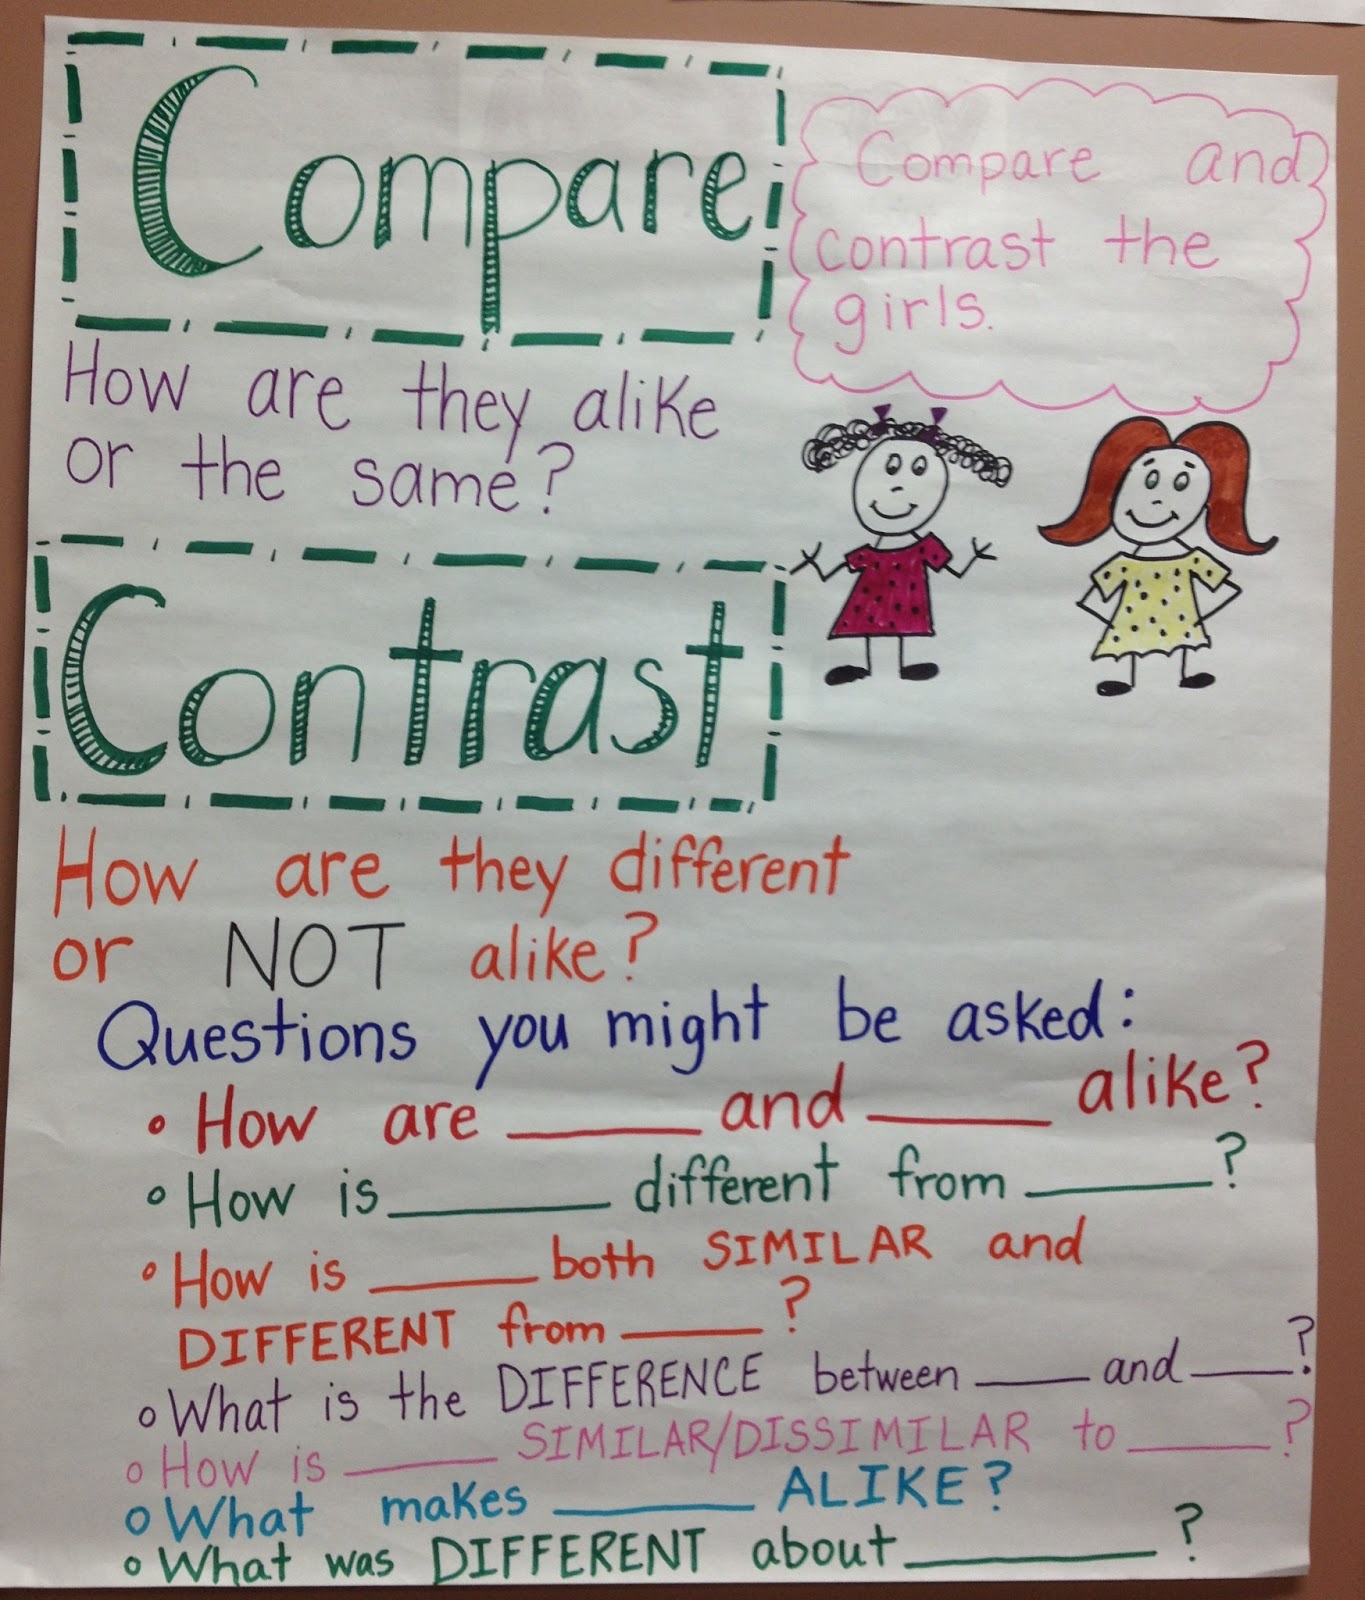 Compare
How are they alike
or the same?
Compare and
contrast the
girls.
Contrast
How are they different
or NOT alike?
Questions you might be asked:
• How are ______ and ______ alike?
• How is ______ different from ______?
• How is ______ both SIMILAR and
DIFFERENT from ______?
• What is the DIFFERENCE between ______ and ______?
• How is ______ SIMILAR/DISSIMILAR to ______?
• What makes ______ ALIKE?
• What was DIFFERENT about ______?